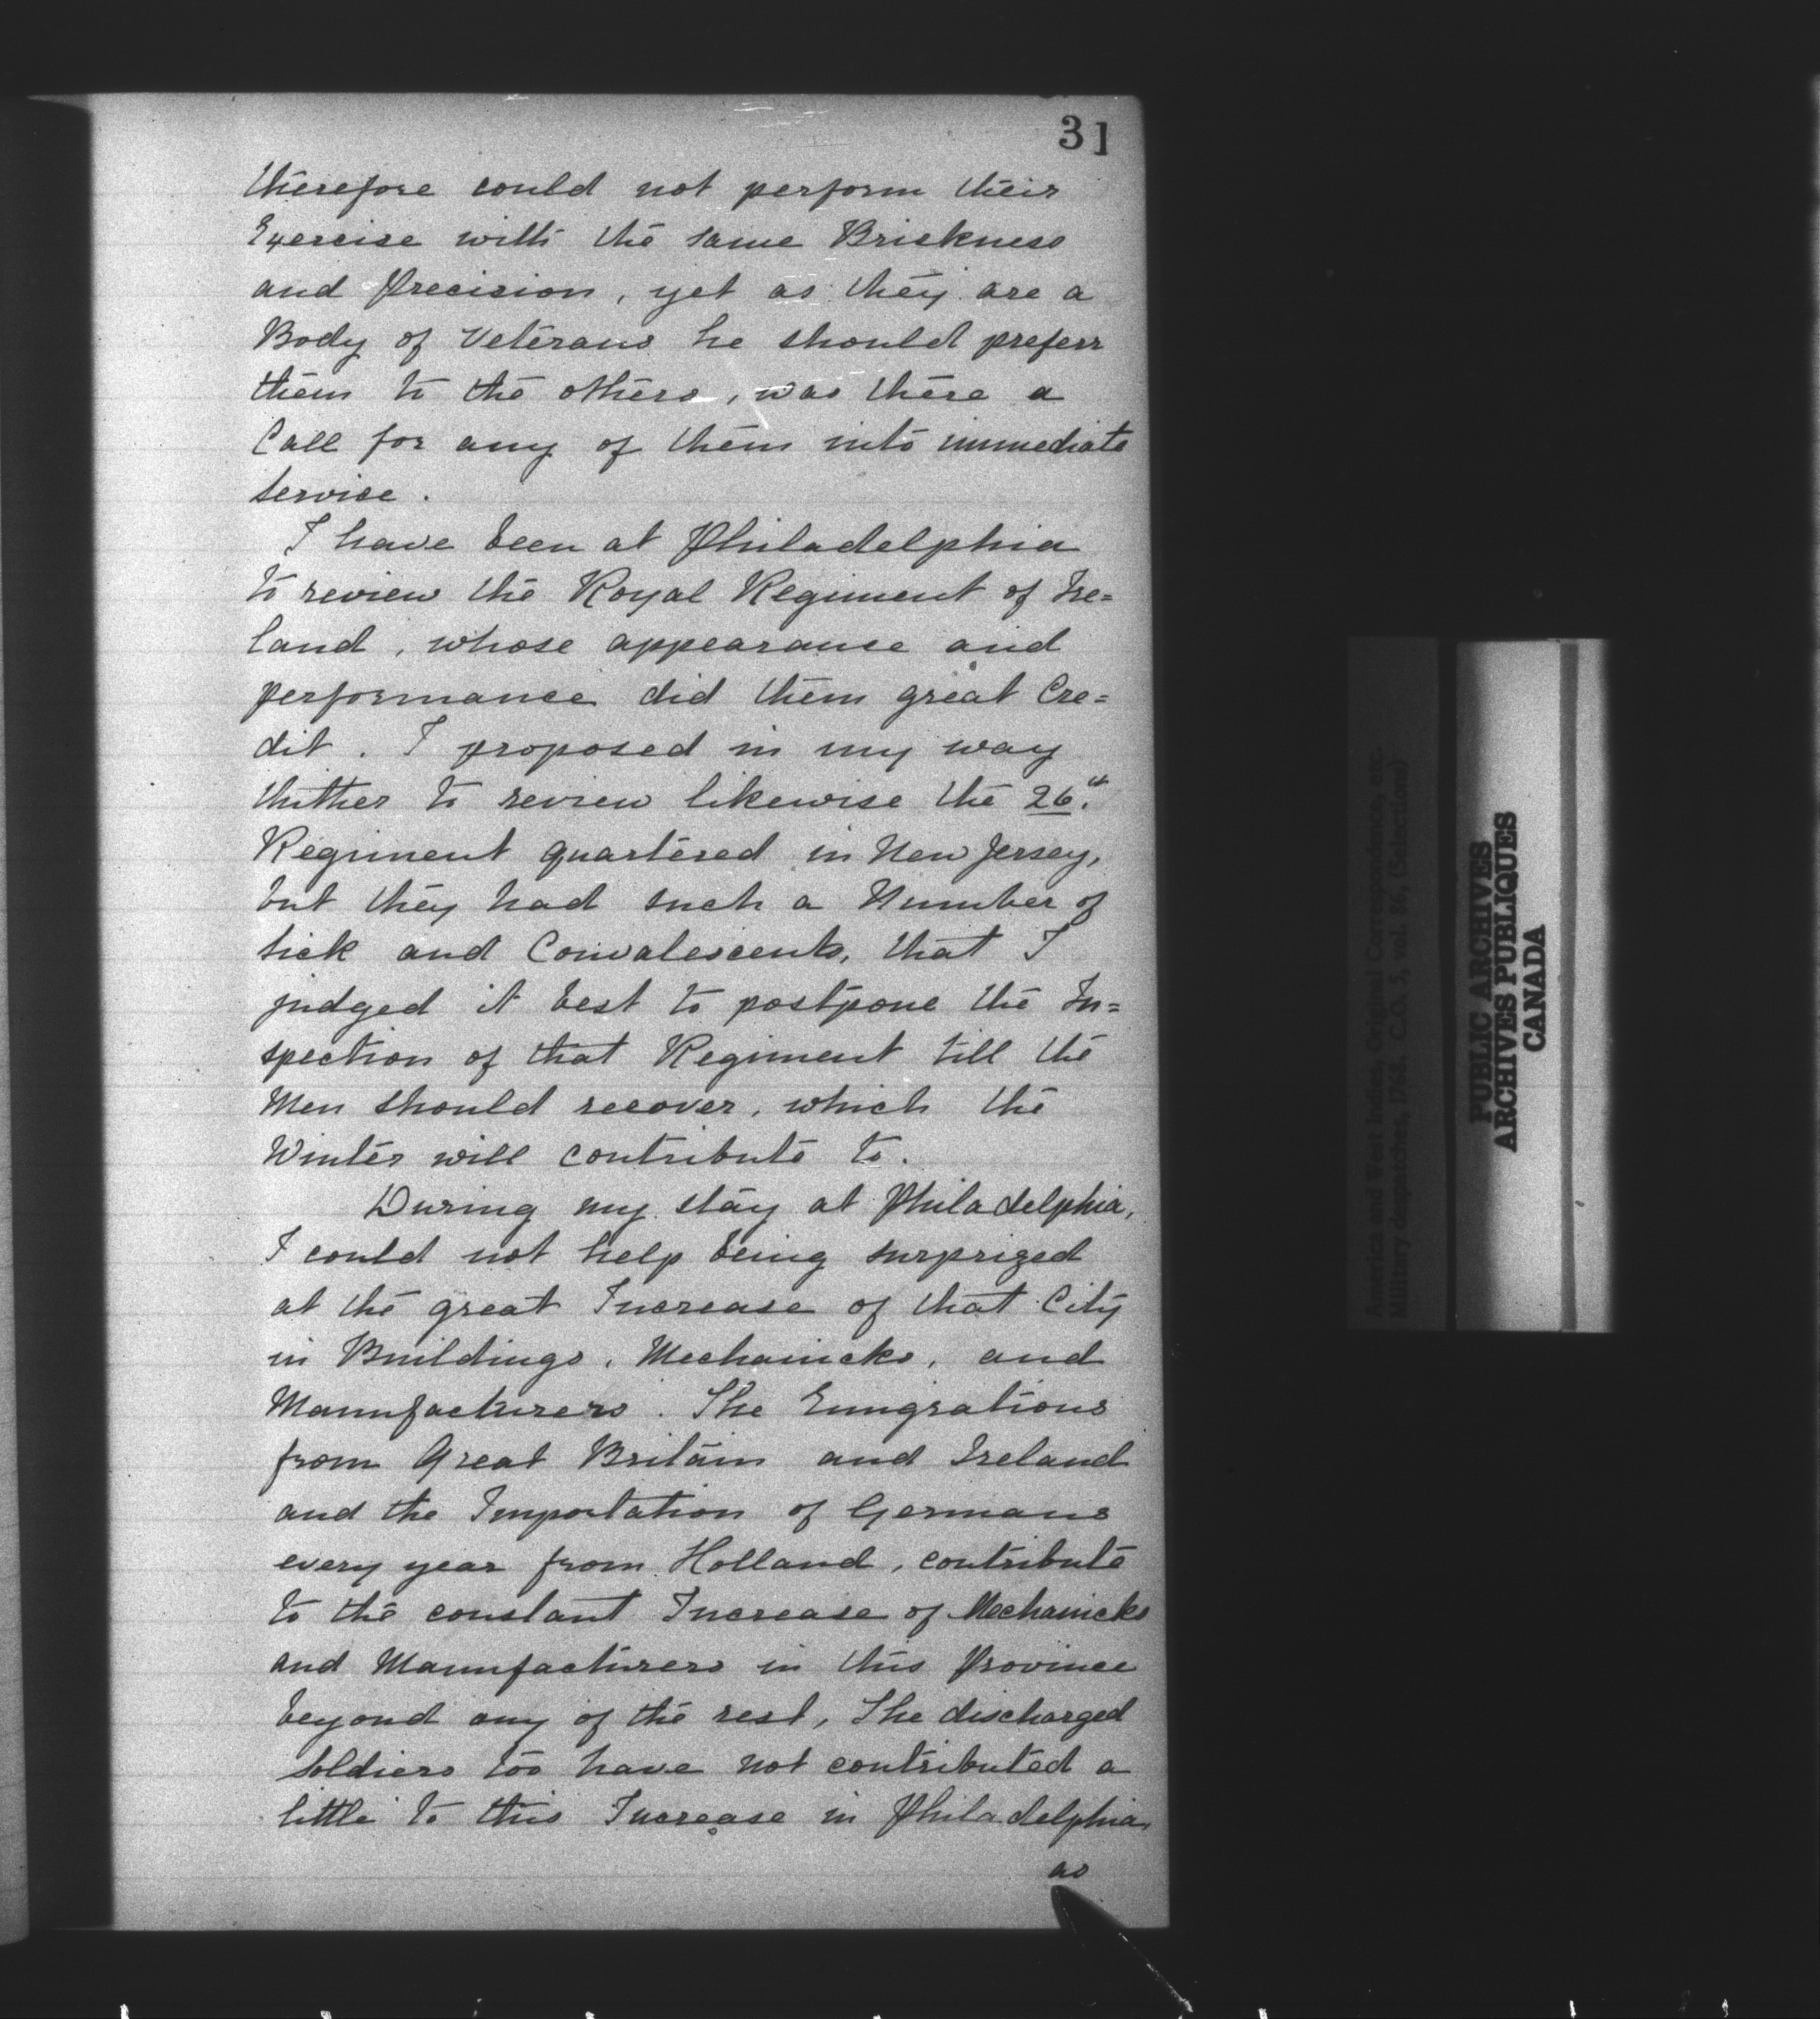 31
therefore could not perform their
Exercise with the same Briskness
and Precision, yet as they are a
Body of Veterans he should preferr
them to the others, was there a
Call for any of them into immediate
Service.
I have been at Philadelphia
to review the Royal Regiment of Ire=
land, whose appearance and
performance did them great Cre=
dit. I proposed in my way
thither to review likewise the 26th
Regiment quartered in New Jersey,
but they had such a Number of
Sick and Convalescents, that I
judged it best to postpone the In=
spection of that Regiment till the
Men should recover, which the
Winter will contribute to.
During my stay at Philadelphia,
I could not help being surprized
at the great Increase of that City
in Buildings, Mechanicks, and
Manufacturers. The Emigrations
from Great Britain and Ireland
and the Importation of Germans
every year from Holland, contribute
to the constant Increase of Mechanicks
and Manufacturers in this Province
beyond any of the rest, The discharged
Soldiers too have not contributed a
little to this Increase in Philadelphia,
as
America and West Indies, Original Correspondence, etc.
Military despatches, 1768. C.O. 5, vol. 86, (Selections)
PUBLIC ARCHIVES
ARCHIVES PUBLIQUES
CANADA